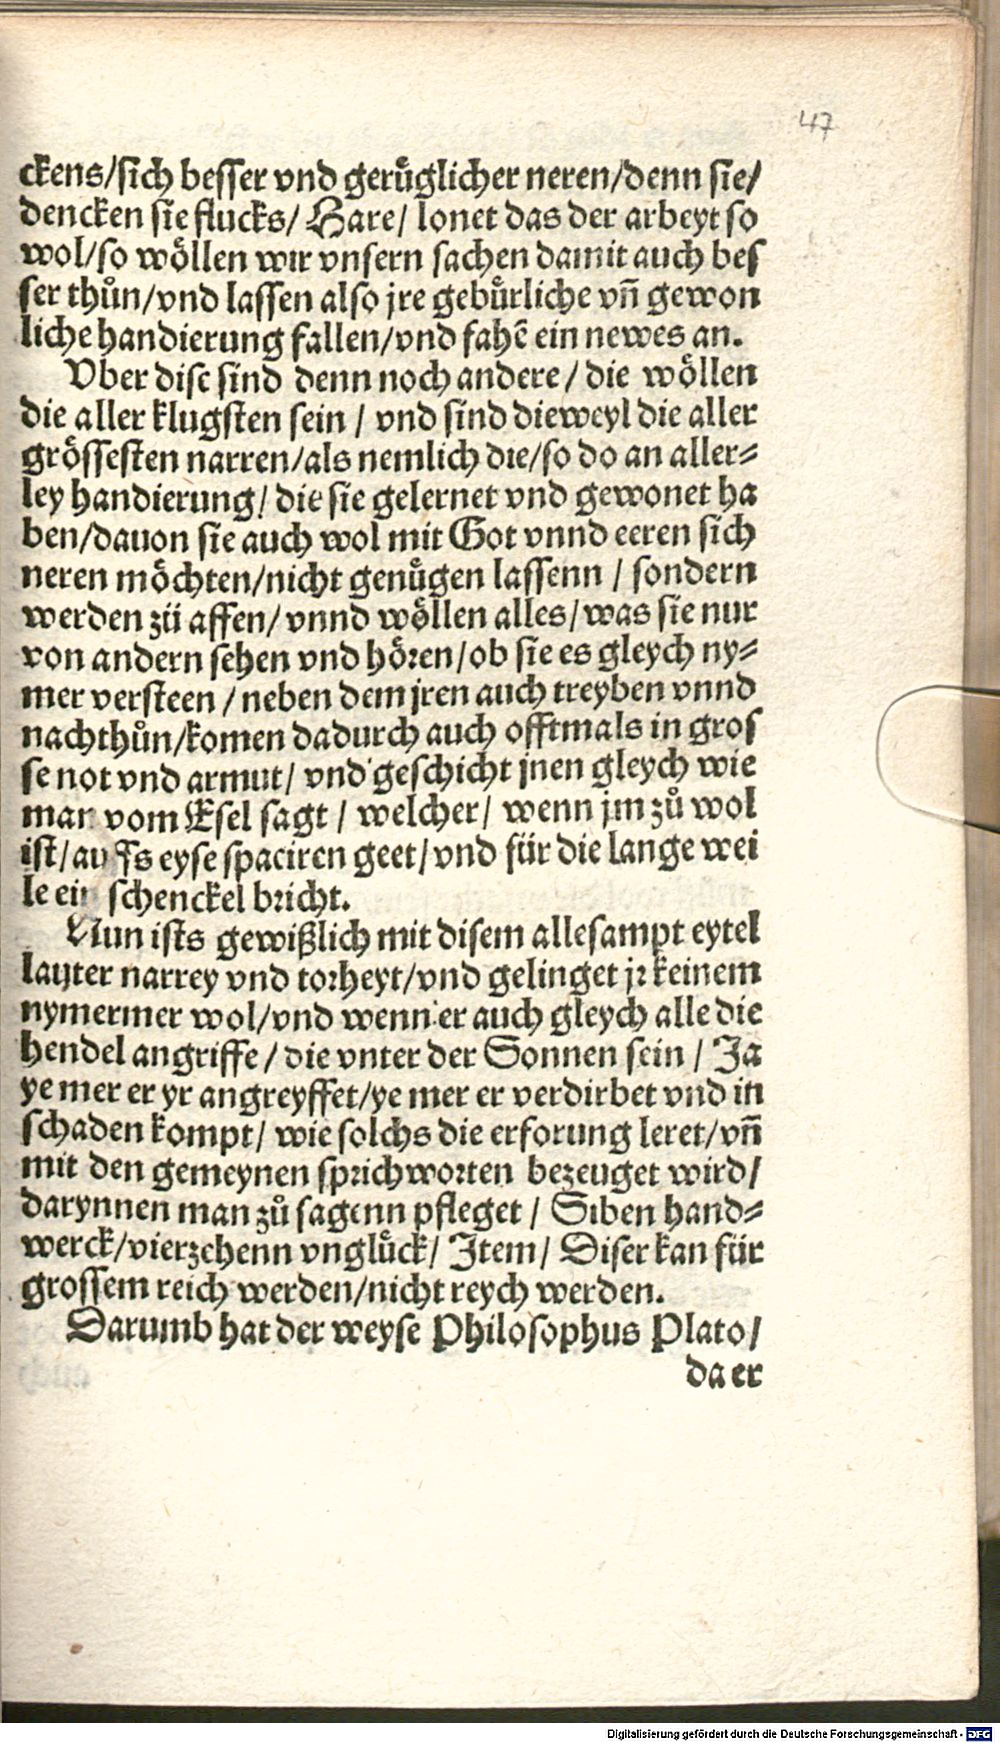 47
ckens/sich besser vnd gerůglicher neren/denn sie/
dencken sie flucks/ Hare/ lonet das der arbeyt so
wol/so wöllen wir vnsern sachen damit auch bes
ser thůn/vnd lassen also jre gebůrliche vñ gewon
liche handierung fallen/vnd fahē ein newes an.
Vber dise sind denn noch andere/ die wöllen
die aller klugsten sein / vnd sind dieweyl die aller
grössesten narren/als nemlich die/so do an aller⸗
ley handierung/ die sie gelernet vnd gewonet ha
ben/dauon sie auch wol mit Got vnnd eeren sich
neren möchten/nicht genůgen lassenn / sondern
werden zů affen/ vnnd wöllen alles/ was sie nur
von andern sehen vnd hören/ob sie es gleych ny⸗
mer versteen / neben dem jren auch treyben vnnd
nachthůn/komen dadurch auch offtmals in gros
se not vnd armut/ vnd geschicht jnen gleych wie
man vom Esel sagt / welcher/ wenn jm zů wol
ist/ auffs eyse spaciren geet/vnd für die lange wei
le ein schenckel bricht.
Nun ists gewißlich mit disem allesampt eytel
lauter narrey vnd torheyt/vnd gelinget jr keinem
nymermer wol/vnd wenn er auch gleych alle die
hendel angriffe/ die vnter der Sonnen sein / Ja
ye mer er yr angreyffet/ye mer er verdirbet vnd in
schaden kompt/ wie solchs die erforung leret/vñ
mit den gemeynen sprichworten bezeuget wird/
darynnen man zů sagenn pfleget / Siben hand⸗
werck/vierzehenn vnglůck/ Item/ Diser kan für
grossem reich werden/nicht reych werden.
Darumb hat der weyse Philosophus Plato/
da er
Digitalisierung gefördert durch die Deutsche Forschungsgemeinschaft - DFG